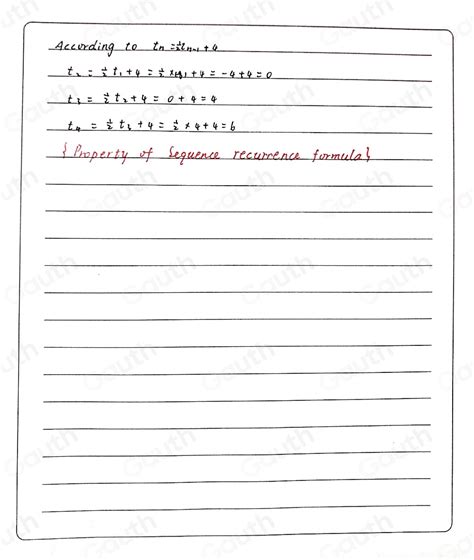 According to tn = ½tn-1 + 4
t₂ = ½t₁ + 4 = ½×(-8) + 4 = -4+4=0
t₃ = ½t₂ + 4 = 0 + 4 = 4
t₄ = ½t₃ + 4 = ½ × 4 + 4 = 6
{Property of Sequence recurrence formula}
Gauth